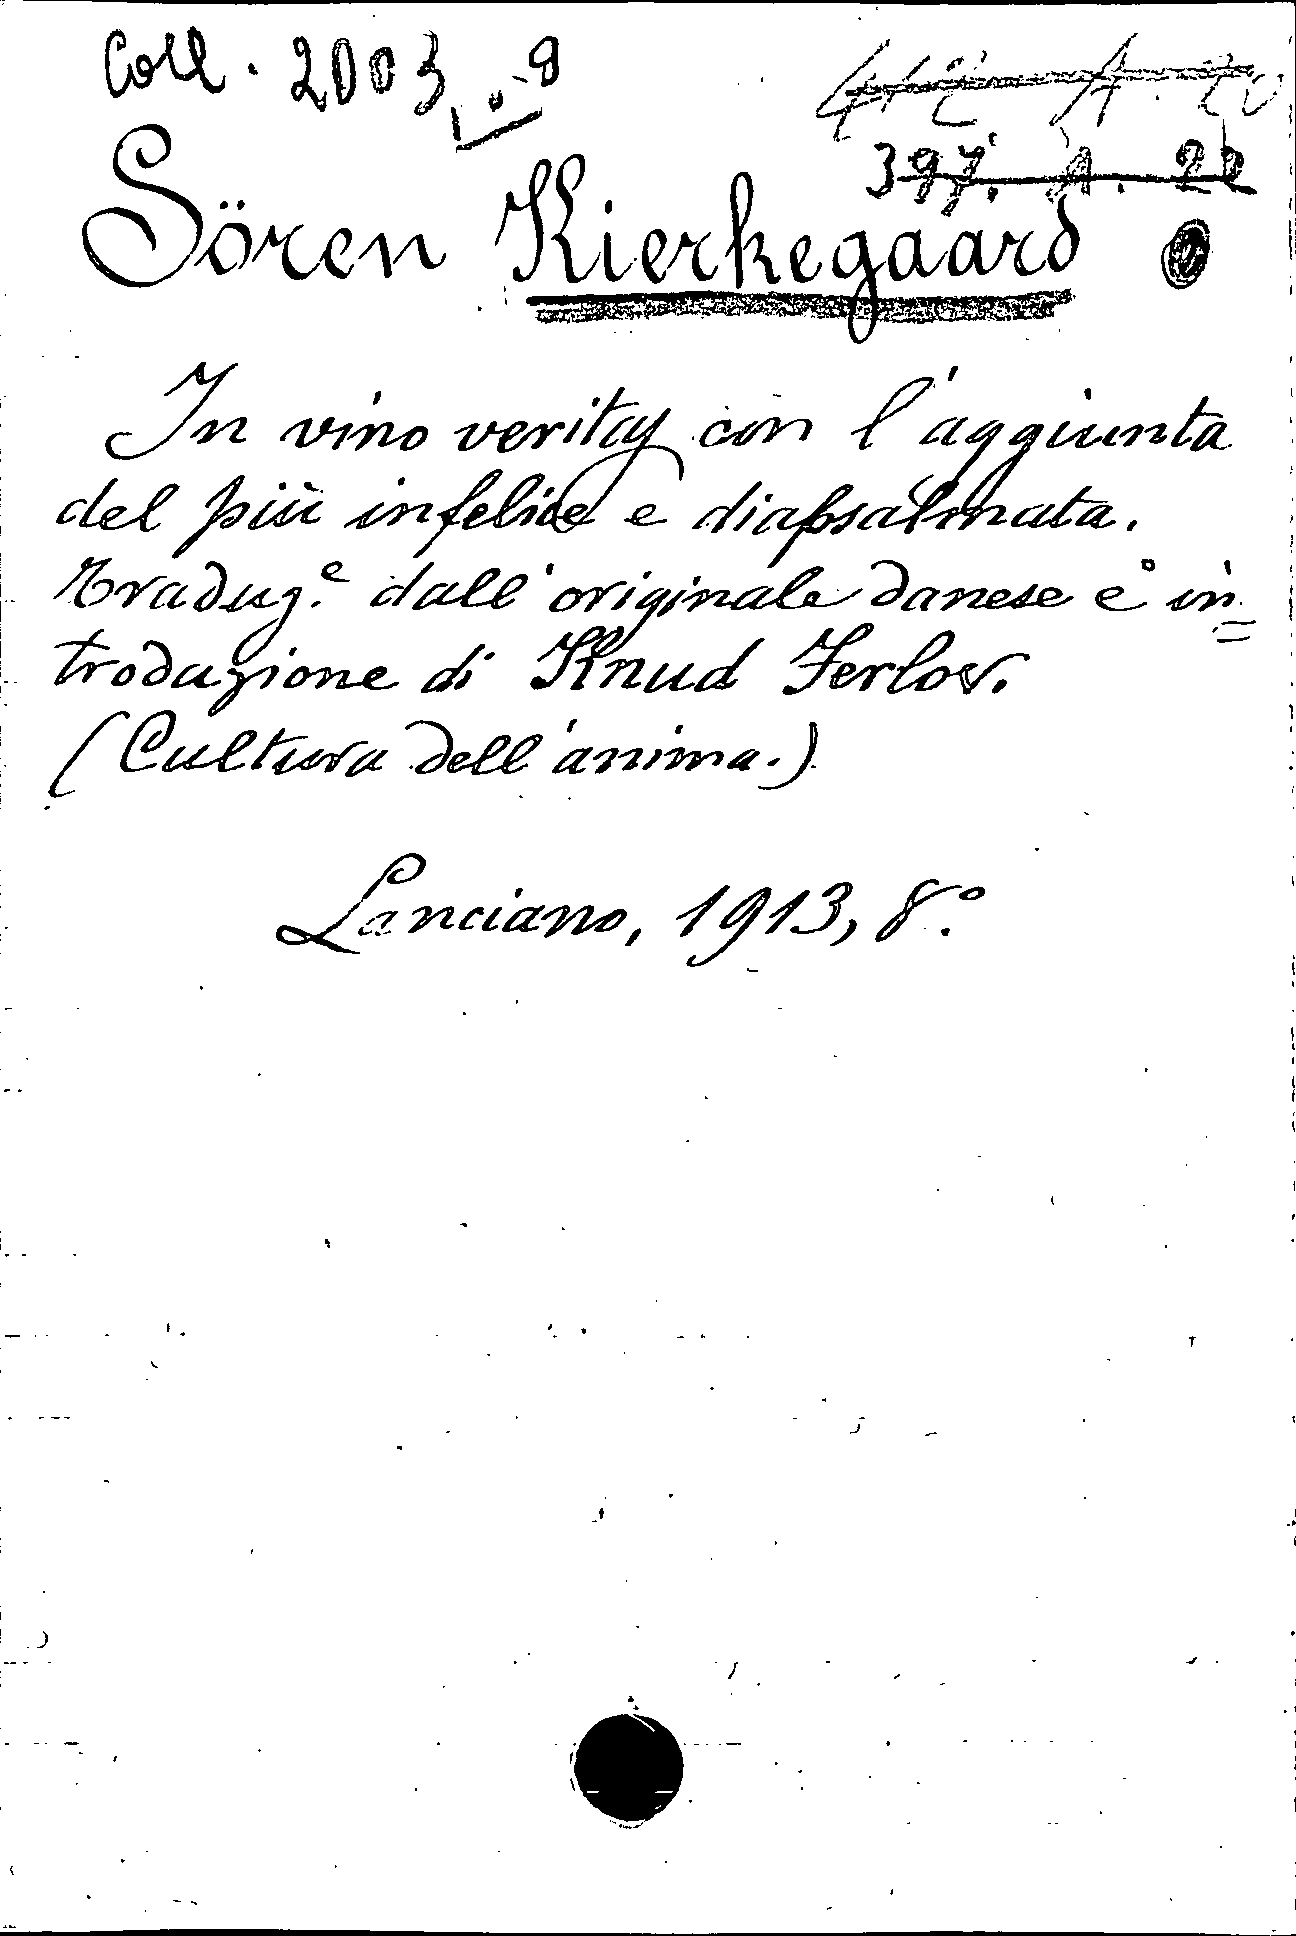 Coll. 2003
397. A. 22
Sören Kierkegaard
In vino veritas con l'aggiunta
del più infelice e diapsalmata.
Traduz.e dall'originale danese e in=
troduzione di Knud Ferlov.
(Cultura dell'anima.)
Lanciano, 1913, 8.º